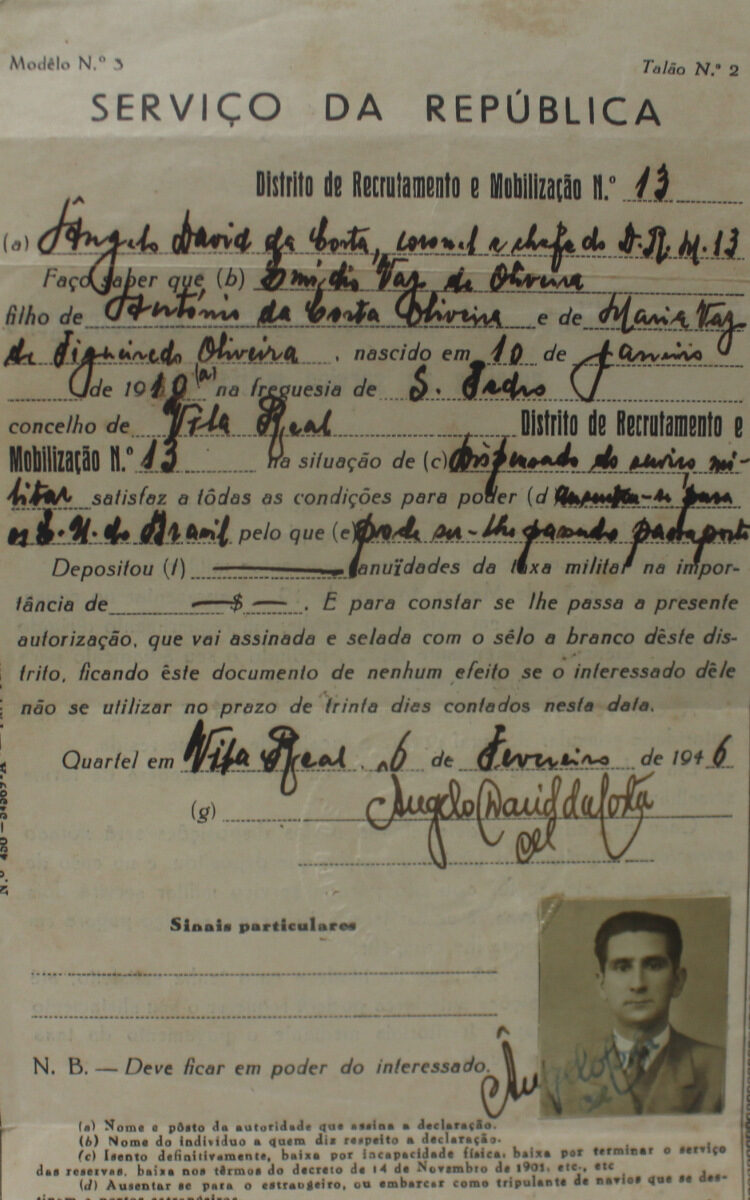 Modêlo N.º 3
Talão N.º 2
SERVIÇO DA REPÚBLICA
Distrito de Recrutamento e Mobilização N.º 13
(a) Ângelo David da Costa, coronel e chefe do D.R.M. 13
Faço saber que (b) Emídio Vaz de Oliveira
filho de António da Costa Oliveira e de Maria Vaz
de Figueiredo Oliveira, nascido em 10 de Janeiro
de 1910 (a) na freguesia de S. Pedro
concelho de Vila Real Distrito de Recrutamento e
Mobilização N.º 13 na situação de (c) Dispensado do serviço mi-
litar satisfaz a tôdas as condições para poder (d ausentar-se para
os E. U. do Brasil pelo que (e) pode ser-lhe passado passaporte
Depositou (f) anuïdades da taxa militar na impor-
tância de —$— . E para constar se lhe passa a presente
autorização, que vai assinada e selada com o sêlo a branco dêste dis-
trito, ficando êste documento de nenhum efeito se o interessado dêle
não se utilizar no prazo de trinta dias contados nesta data.
Quartel em Vila Real, 6 de Fevereiro de 1946
(g) Angelo David da Costa
cel
Sinais particulares
N. B. — Deve ficar em poder do interessado.
(a) Nome e pôsto da autoridade que assina a declaração.
(b) Nome do indivíduo a quem diz respeito a declaração.
(c) Isento definitivamente, baixa por incapacidade física, baixa por terminar o serviço
das reservas, baixa nos têrmos do decreto de 14 de Novembro de 1901, etc., etc
(d) Ausentar se para o estrangeiro, ou embarcar como tripulante de navios que se des-
tinem a portos estrangeiros.